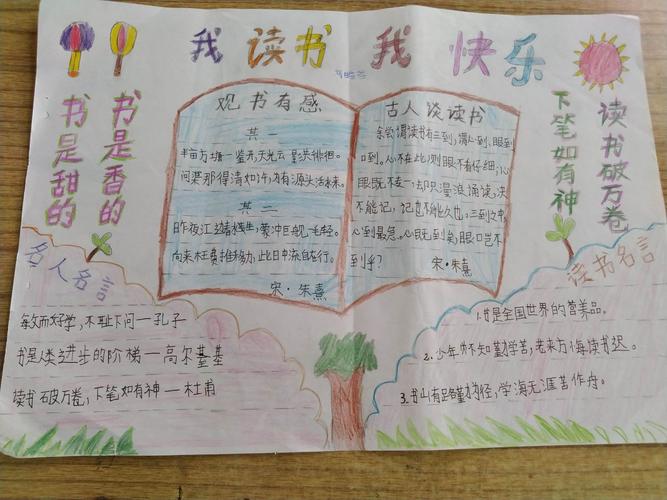 我读书 我快乐
书是香的
书是甜的
读书破万卷
下笔如有神
观书有感
其一
半亩方塘一鉴开,天光云影共徘徊。
问渠那得清如许,为有源头活水来。
其二
昨夜江边春水生,蒙冲巨舰一毛轻。
向来枉费推移力,此日中流自在行。
宋·朱熹
古人谈读书
余尝谓读书有三到,谓心到、眼到
口到。心不在此,则眼不看仔细,心
眼既不专一,却只漫浪诵读,决
不能记,记亦不能久也。三到之中,
心到最急。心既到矣,眼口岂不
到乎?
宋·朱熹
名人名言
敏而好学,不耻下问—孔子
书是人类进步的阶梯—高尔基
读书破万卷,下笔如有神—杜甫
读书名言
书是全国世界的营养品。
2.少年不知勤学苦,老来方悔读书迟。
3.书山有路勤为径,学海无涯苦作舟。